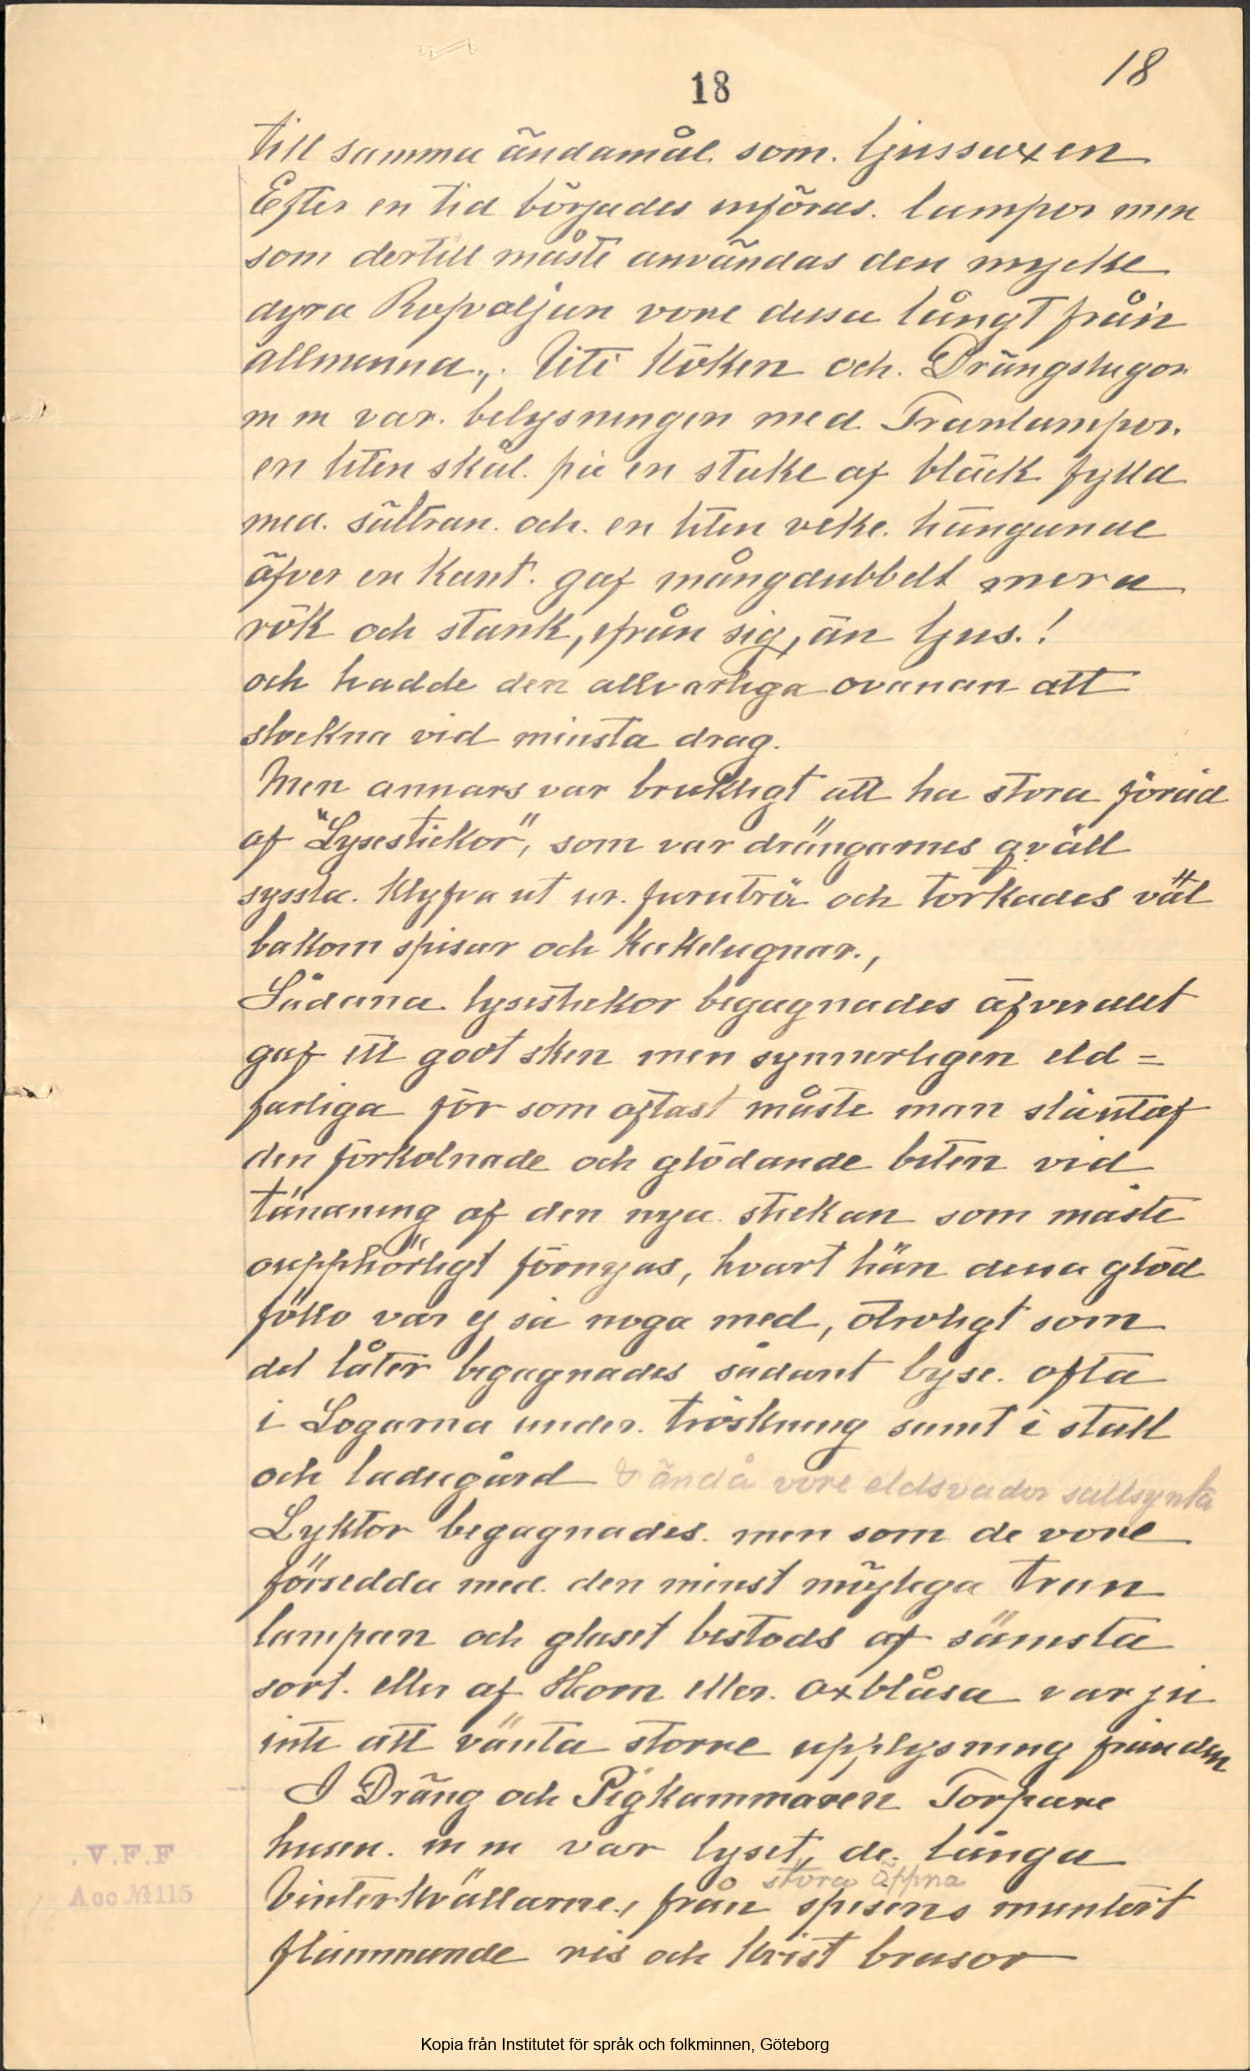 18
18
till samma ändamål. som. ljussaxen
Efter en tid börjades införas. lampor men
som dertill måste användas den mycke
dyra Rofvoljan vore dessa långt från
allmänna., Uti Köken och. Drängstugor
m m var. belysningen med Tranlampor.
en liten skål. på en stake af bläck fylld
med. sältran. och. en liten veke. hängande
öfver en Kant. gaf mångdubbelt mera
rök och stank, ifrån sig, än ljus.!
och hadde den allvarliga ovanan att
slockna vid minsta drag.
Men annars var brukligt att ha stora föråd
af "Lysestickor", som var drängarnes qväll
syssla. Klyfva ut ur. furuträ och torkades väl
bakom spisar och Kakelugnar.,
Sådana lysestickor begagnades äfverallt
gaf ett godt sken men synnerligen eld=
farliga för som oftast måste man slåntaf
den förkolnade och glödande biten vid
tändning af den nya stickan som måste
oupphörligt förnyas, hvart hän dessa glöd
föllo var ej så noga med, otroligt som
det låter begagnades sådant lyse. ofta
i Logarna under. tröskning samt i stall
och ladugård & ändå vore eldsvador sallsynta
Lyktor begagnades. men som de vore
försedda med. den minst möjliga tran
lampan och glaset bestods af sämsta
sort. eller af Horn eller. oxblåsa var ju
inte att vänta storre upplysning från dem
I Dräng och Pigkammaren Torpare
husen. m m var lyset, de. långa
stora öppna
Vinterkvällarne., från spisens muntert
flammande ris och Kvist brasor
. V.F.F
Acc № 115
Kopia från Institutet för språk och folkminnen, Göteborg